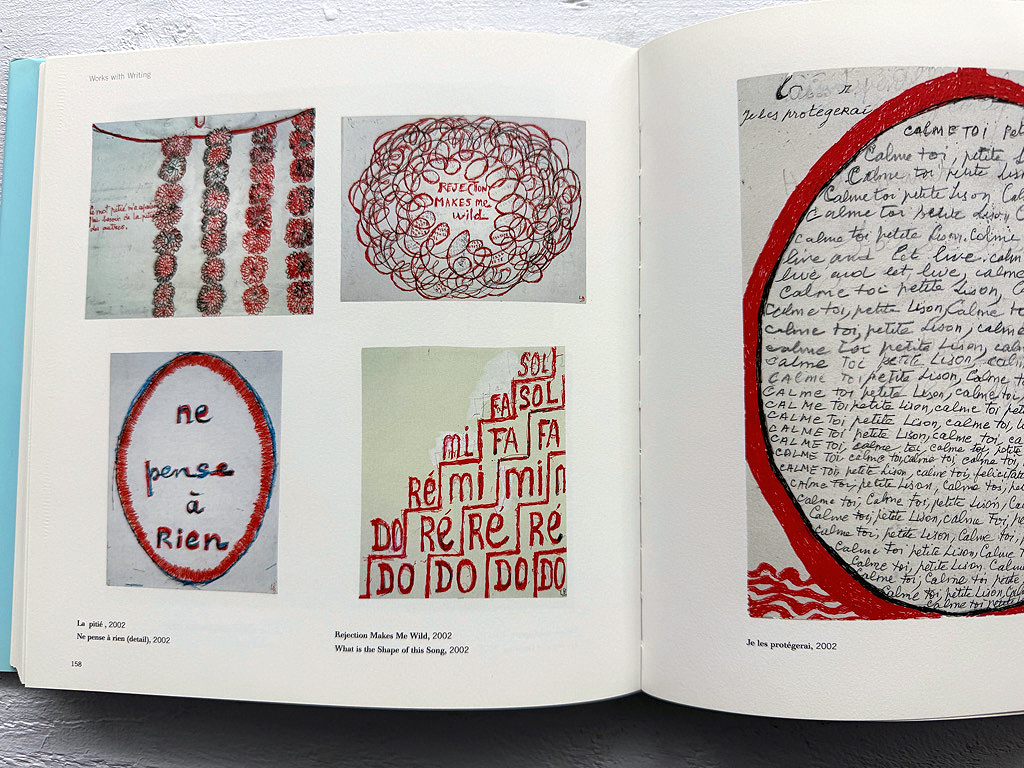 Works with Writing
Le mot pitié m'a
j'ai besoin de la pitié
des autres.
REJECTION
MAKES me
Wild
ne
pense
à
Rien
SOL
FA SOL
mi FA FA
Ré mi mi m
DO Ré Ré Ré
DO DO DO DO
La pitié , 2002
Ne pense à rien (detail), 2002
Rejection Makes Me Wild, 2002
What is the Shape of this Song, 2002
158
Je les protégerai
CALME TOI pet
Calme toi, petite Lison
Calme toi, petite Lison
Calme toi petite Lison, Ca
Calme toi petite Lison, C
Calme toi petite Lison. Calme
live and let live. calm
live and let live, calme
Calme toi petite Lison, C
Calme toi, petite Lison, Calme to
Calme toi, petite Lison, calme
calme toi petite Lison, calm
calme toi petite Lison calme
CALME TOI petite Lison, Calme to
CALME TOI petite Lison, calme toi,
CALME TOI petite Lison, calme toi pet
CALME TOI petite Lison, calme toi, L
CALME TOI petite Lison, calme toi, ca
CALME TOI, calme toi, calme toi, petite
CALME TOI calme toi, calme toi, calme toi,
CALME TOI petite Lison, calme toi, felicitate
Calme toi, petite Lison, Calme toi, pe
Calme toi, Calme toi, petite Lison, Ca
Calme toi, petite Lison, calme toi, pe
Calme toi, petite Lison, Calme toi
Calme toi petite Lison, Calme T
Calme toi, petite Lison. Calme
Calme toi, Calme toi, petite
Calme toi, petite Lison, Cal
Calme toi petite
Je les protégerai, 2002